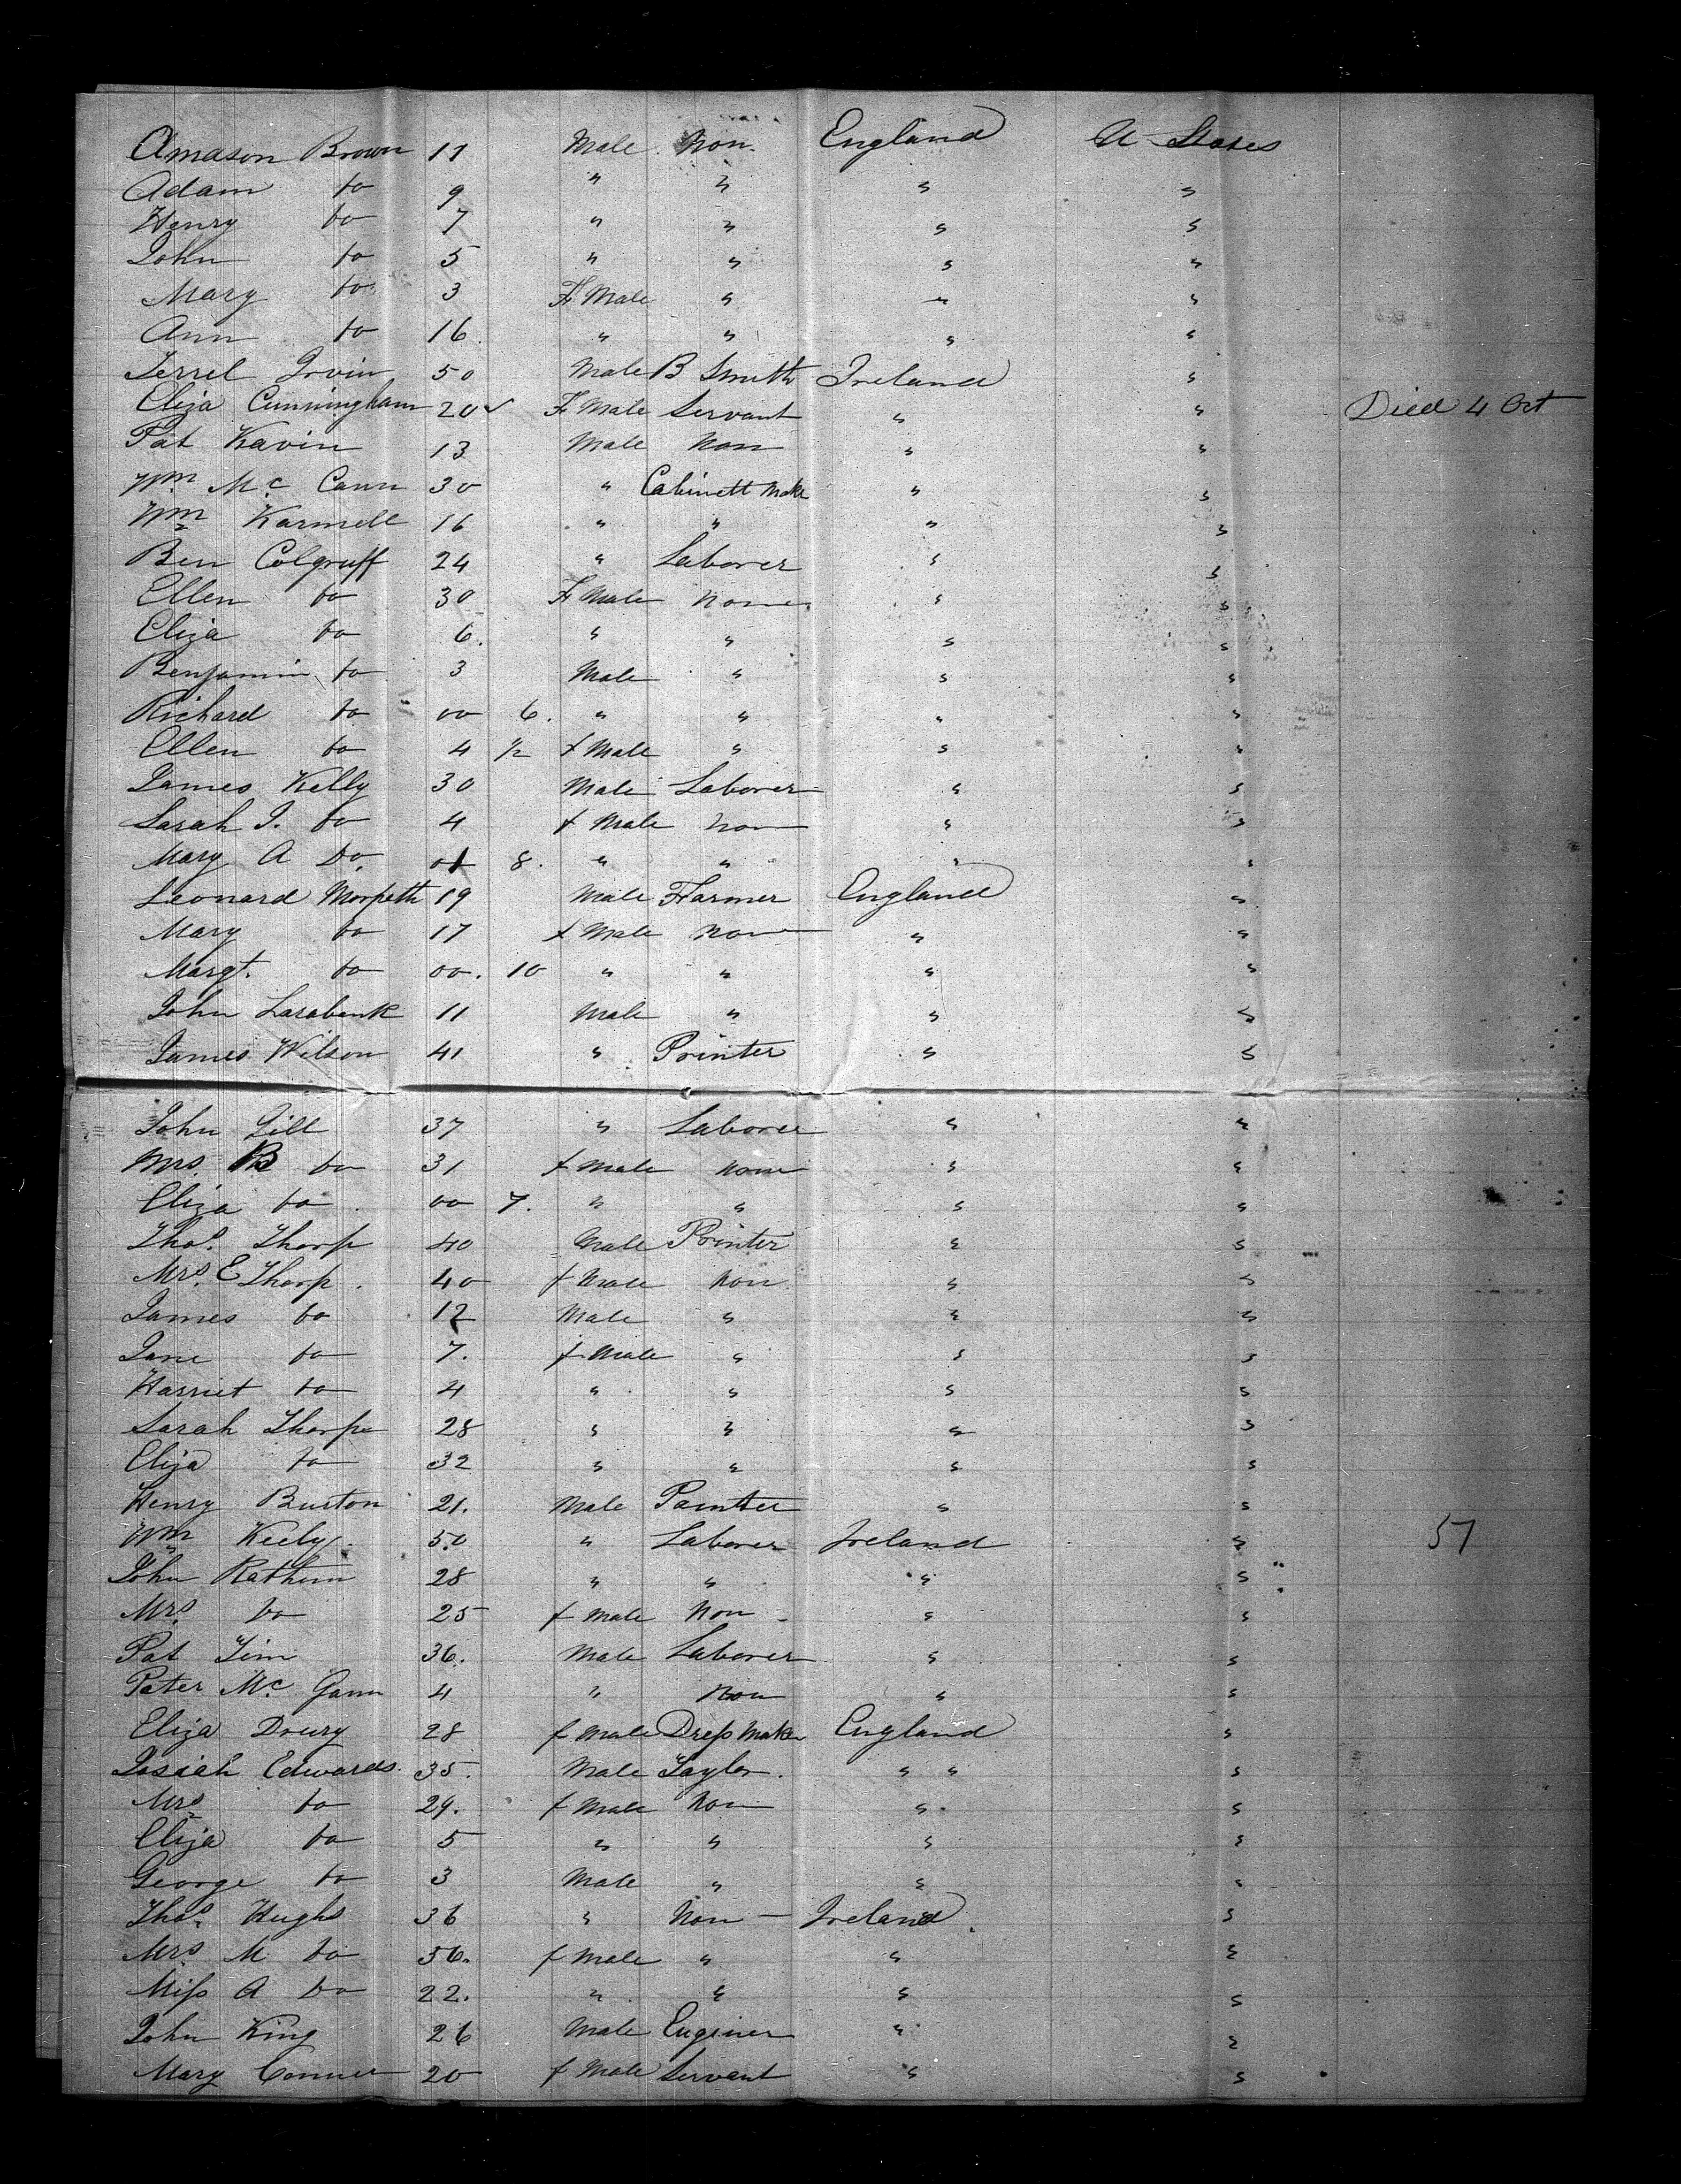 Amason Brown 11 Male Non. England U States
Adam do 9 " " " "
Henry do 7 " " " "
John do 5 " " " "
Mary do 3 F Male " " "
Ann do 16 " " " "
Terrel Irvin 50 Male B Smith Ireland "
Eliza Cunningham 20 F Male Servant " " Died 4 Oct
Pat Kavin 13 Male Non " "
Wm Mc Cann 30 " Cabinett Make " "
Wm Karmell 16 " " " "
Ben Colgruff 24 " Laborer " "
Ellen do 30 F Male None " "
Eliza do 6. " " " "
Benjamin do 3 Male " " "
Richard do 00 6. " " " "
Ellen do 4 1/2 f Male " " "
James Kelly 30 Male Laborer " "
Sarah J. do 4 f Male Non " "
Mary A Do 01 8. " " " "
Leonard Morpeth 19 Male Farmer England "
Mary do 17 f Male Non " "
Margt. do 00. 10 " " " "
John Larabenk 11 Male " " "
James Wilson 41 " Printer " "
John Gill 37 " Laborer " "
Mrs. B do 31 f Male None " "
Eliza do 00 7. " " " "
Thos. Thorp 40 Male Printer " "
Mrs. E Thorp. 40 f Male Non " "
James do 12 Male " " "
Jane do 7. f Male " " "
Harriet do 4 " " " "
Sarah Thorpe 28 " " " "
Eliza do 32 " " " "
Henry Burton 21. Male Painter " "
Wm Keely. 50 " Laborer Ireland " 57
John Rathim 28 " " " "
Mrs. do 25 f Male Non " "
Pat Tim 36. Male Laborer " "
Peter Mc Gann 4 " Non " "
Eliza Drury 28 f Male Dress Make England "
Josiah Edwards. 35. Male Taylor. " " "
Mrs do 29. f Male Non " "
Eliza do 5 " " " "
George do 3 Male " " "
Thos. Hughs 36 " Non Ireland "
Mrs. M do 36. f Male " " "
Miss A Do 22. " " " "
John King 26 Male Enginer " "
Mary Conner 20 f Male Servant " "